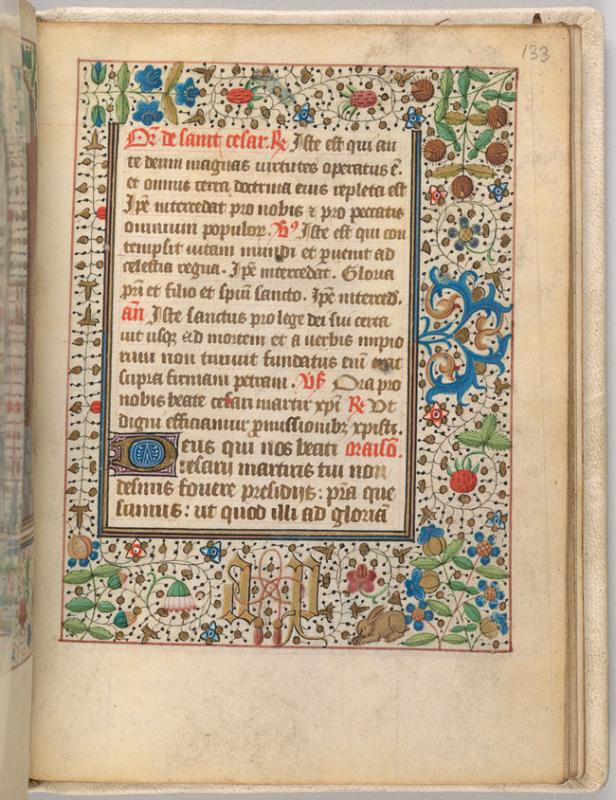 133
Or de saint cesar. R Iste est qui an
te deum magnas virtutes operatus e.
et omnis terra doctrina eius repleta est
Ipe intercedat pro nobis z pro peccatis
omnium populor. V9 Iste est qui con
tempsit vitam mundi et puenit ad
celestia regna. Ipe intercedat. Gloria
pri et filio et spiui sancto. Ipe interced.
an Iste sanctus pro lege dei sui certa
uit usq ad mortem et a verbis impio
rum non timuit fundatus eni erat
supra firmam petram. Vs Ora pro
nobis beate cesari martir xpi R Ut
digni efficiamur pmissionibz xpisti.
Deus qui nos beati oraiso.
cesarii martiris tui non
desinis fouere presidiis: pra que
sumus: ut quod illi ad gloria